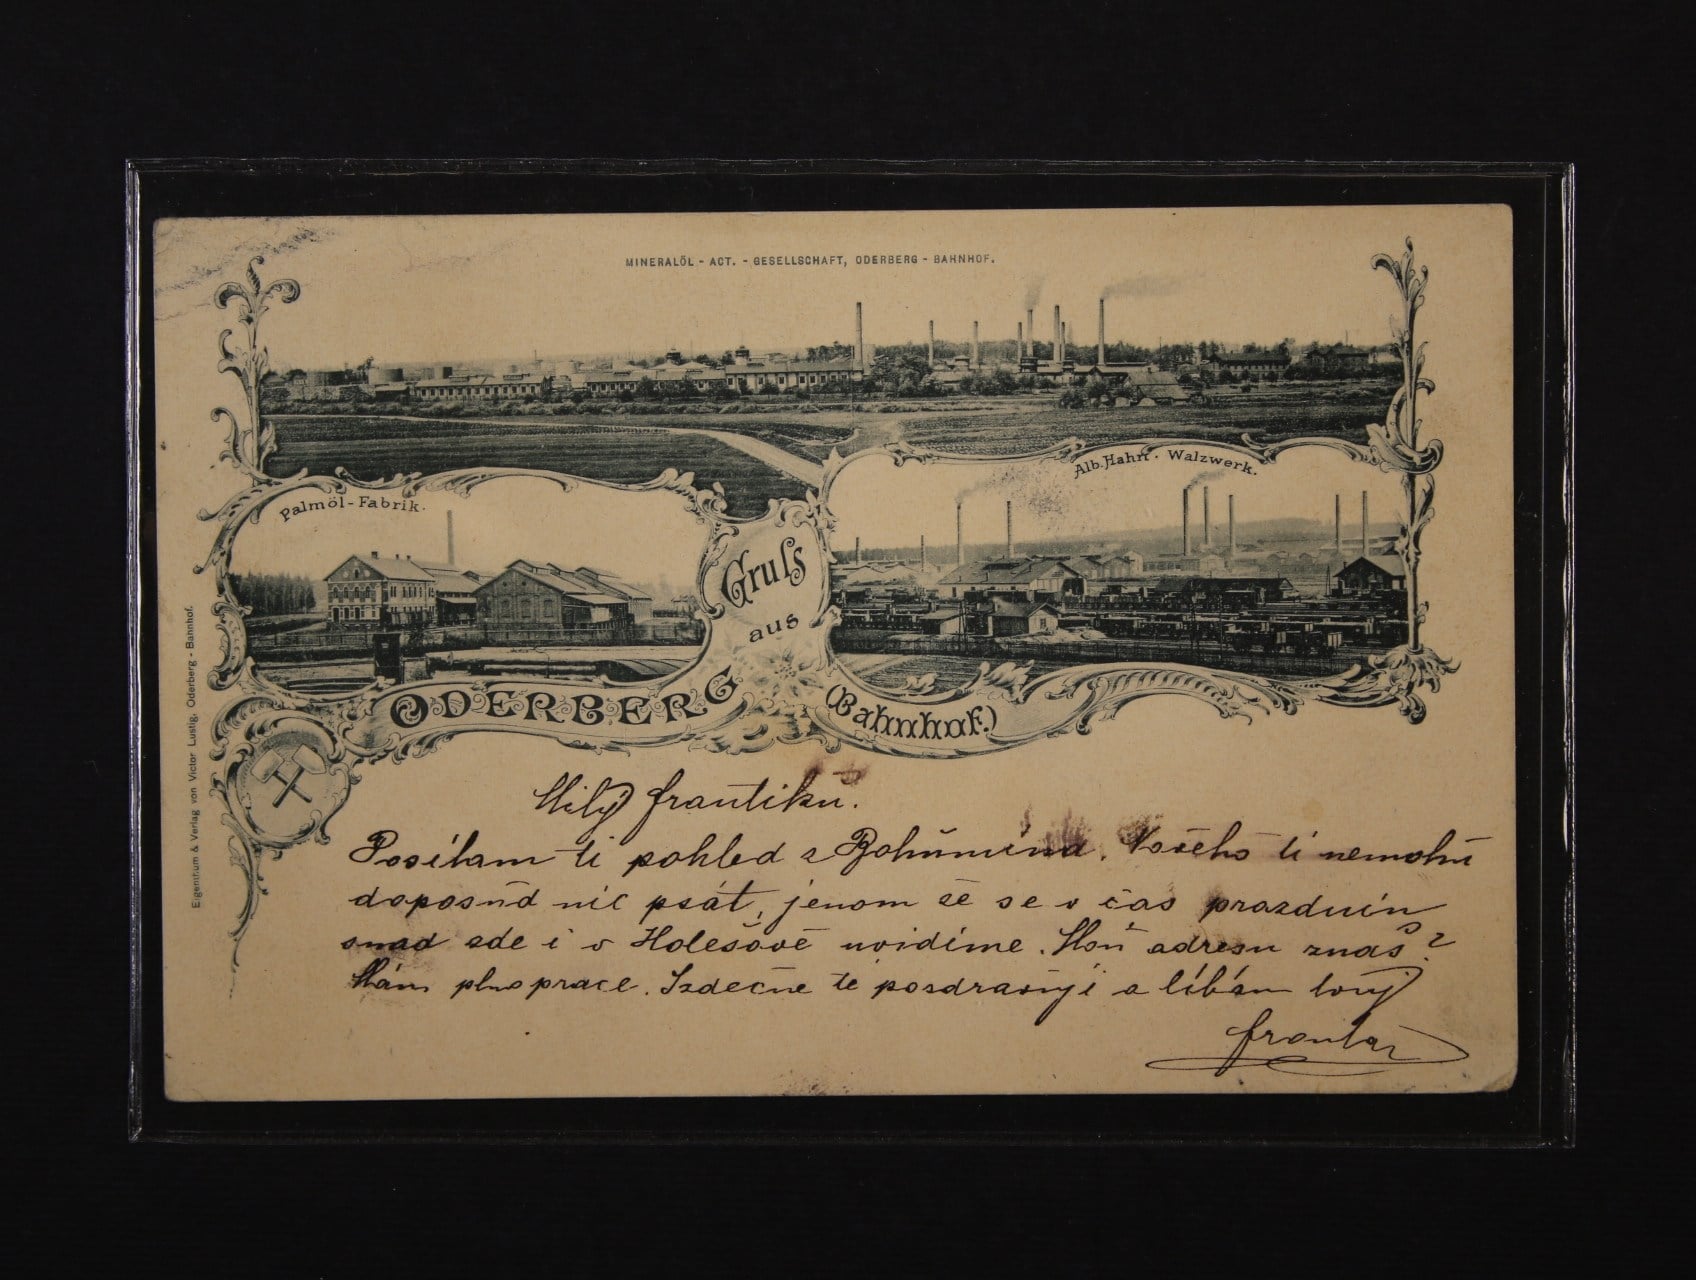 MINERALÖL - ACT. - GESELLSCHAFT, ODERBERG - BAHNHOF.
Palmöl-Fabrik.
Alb. Hahn - Walzwerk.
Gruls
aus
ODERBERG
(Bahnhof.)
Eigentum & Verlag von Victor Lustig, Oderberg - Bahnhof.
Milý Frantíku.
Posílam ti pohled z Bohumína. ti nemohu
doposud nic psát, jenom že se v čas prazdnin
snad zde i v Holešově uvidíme. adresu znaš?
Mám plno prace. Srdečne tě pozdravuji a líbám tvuj